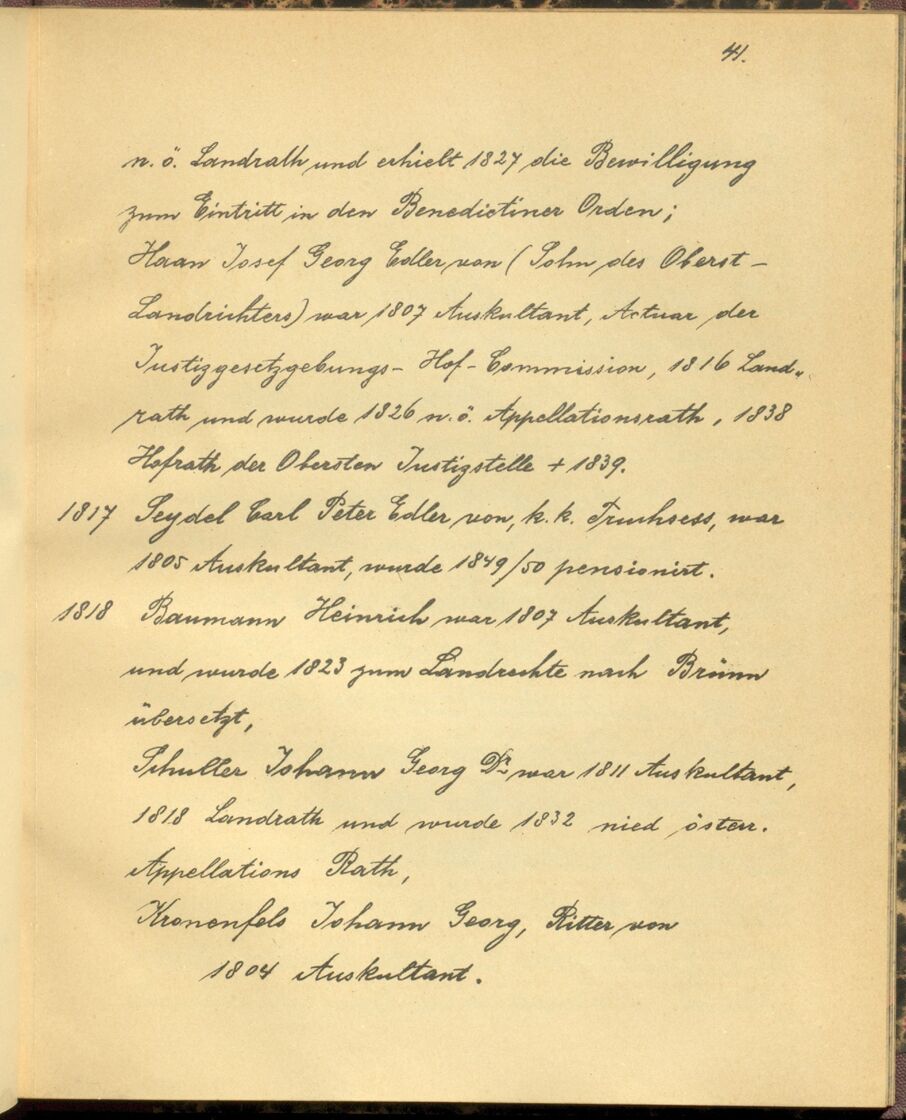 41.
n. ö. Landrath und erhielt 1827 die Bewilligung
zum Eintritt in den Benedictiner Orden;
Haan Josef Georg Edler von (Sohn des Oberst-
Landrichters) war 1807 Auskultant, Actuar der
Justizgesetzgebungs- Hof- Commission, 1816 Land„
rath und wurde 1826 n. ö. Appellationsrath, 1838
Hofrath der Obersten Justizstelle + 1839.
1817 Seydel Carl Peter Edler von, k. k. Truchsess, war
1805 Auskultant, wurde 1849/50 pensionirt.
1818 Baumann Heinrich war 1807 Auskultant,
und wurde 1823 zum Landrechte nach Brünn
übersetzt,
Schuller Johann Georg Dr war 1811 Auskultant,
1818 Landrath und wurde 1832 nied österr.
Appellations Rath,
Kronenfels Johann Georg, Ritter von
1804 Auskultant.